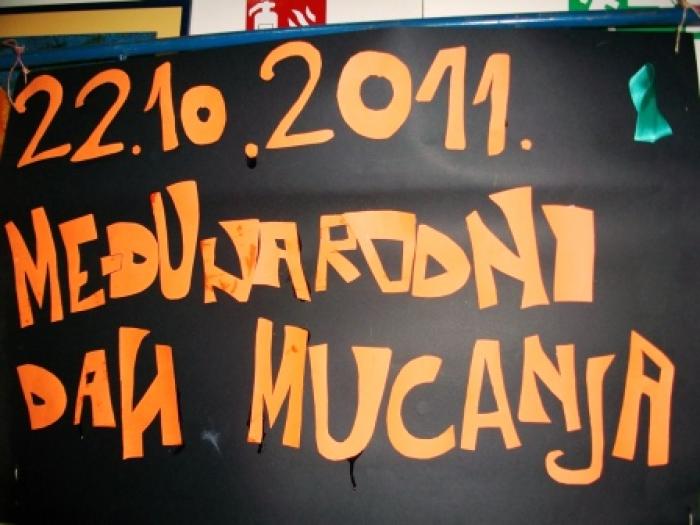 22.10.2011.
MEĐUNARODNI
DAN MUCANJA